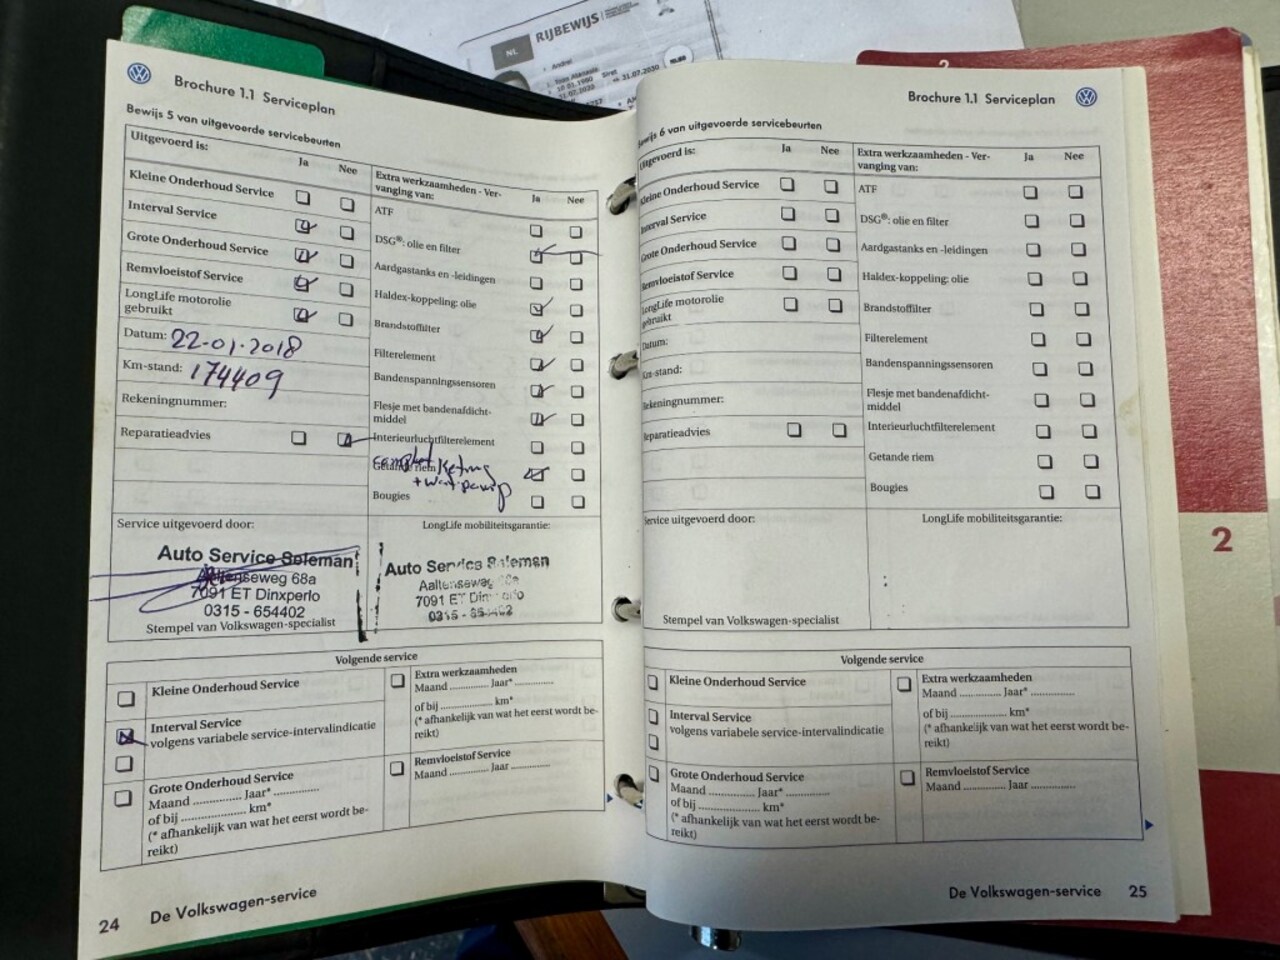 NL
RIJBEWIJS
Andrei
31.07.2030
2
Brochure 1.1 Serviceplan
Bewijs 5 van uitgevoerde servicebeurten
Uitgevoerd is:
Ja
Nee
Kleine Onderhoud Service
Interval Service
Grote Onderhoud Service
Remvloeistof Service
LongLife motorolie
gebruikt
Datum: 22-01-2018
Km-stand: 174409
Rekeningnummer:
Reparatieadvies
Extra werkzaamheden - Ver-
vanging van:
Ja
Nee
ATF
DSG®: olie en filter
Aardgastanks en -leidingen
Haldex-koppeling: olie
Brandstoffilter
Filterelement
Bandenspanningssensoren
Flesje met bandenafdicht-
middel
Interieurluchtfilterelement
Getande riem
Bougies
Service uitgevoerd door:
LongLife mobiliteitsgarantie:
Auto Service Seleman
Aaltenseweg 68a
7091 ET Dinxperlo
0315 - 654402
Stempel van Volkswagen-specialist
Auto Service Seleman
Aaltenseweg 68a
7091 ET Dinxperlo
0315 - 654402
Volgende service
Kleine Onderhoud Service
Interval Service
volgens variabele service-intervalindicatie
Grote Onderhoud Service
Maand ............... Jaar* ..............
of bij ........................ km*
(* afhankelijk van wat het eerst wordt be-
reikt)
Extra werkzaamheden
Maand ............. Jaar* .............
of bij ........................ km*
(* afhankelijk van wat het eerst wordt be-
reikt)
Remvloeistof Service
Maand ............. Jaar .............
24 De Volkswagen-service
Brochure 1.1 Serviceplan
Bewijs 6 van uitgevoerde servicebeurten
Uitgevoerd is:
Ja
Nee
Kleine Onderhoud Service
Interval Service
Grote Onderhoud Service
Remvloeistof Service
LongLife motorolie
gebruikt
Datum:
Km-stand:
Rekeningnummer:
Reparatieadvies
Extra werkzaamheden - Ver-
vanging van:
Ja
Nee
ATF
DSG®: olie en filter
Aardgastanks en -leidingen
Haldex-koppeling: olie
Brandstoffilter
Filterelement
Bandenspanningssensoren
Flesje met bandenafdicht-
middel
Interieurluchtfilterelement
Getande riem
Bougies
Service uitgevoerd door:
LongLife mobiliteitsgarantie:
Stempel van Volkswagen-specialist
Volgende service
Kleine Onderhoud Service
Interval Service
volgens variabele service-intervalindicatie
Grote Onderhoud Service
Maand ............... Jaar* ..............
of bij ........................ km*
(* afhankelijk van wat het eerst wordt be-
reikt)
Extra werkzaamheden
Maand ............. Jaar* .............
of bij ................... km*
(* afhankelijk van wat het eerst wordt be-
reikt)
Remvloeistof Service
Maand ............. Jaar .............
De Volkswagen-service 25
2